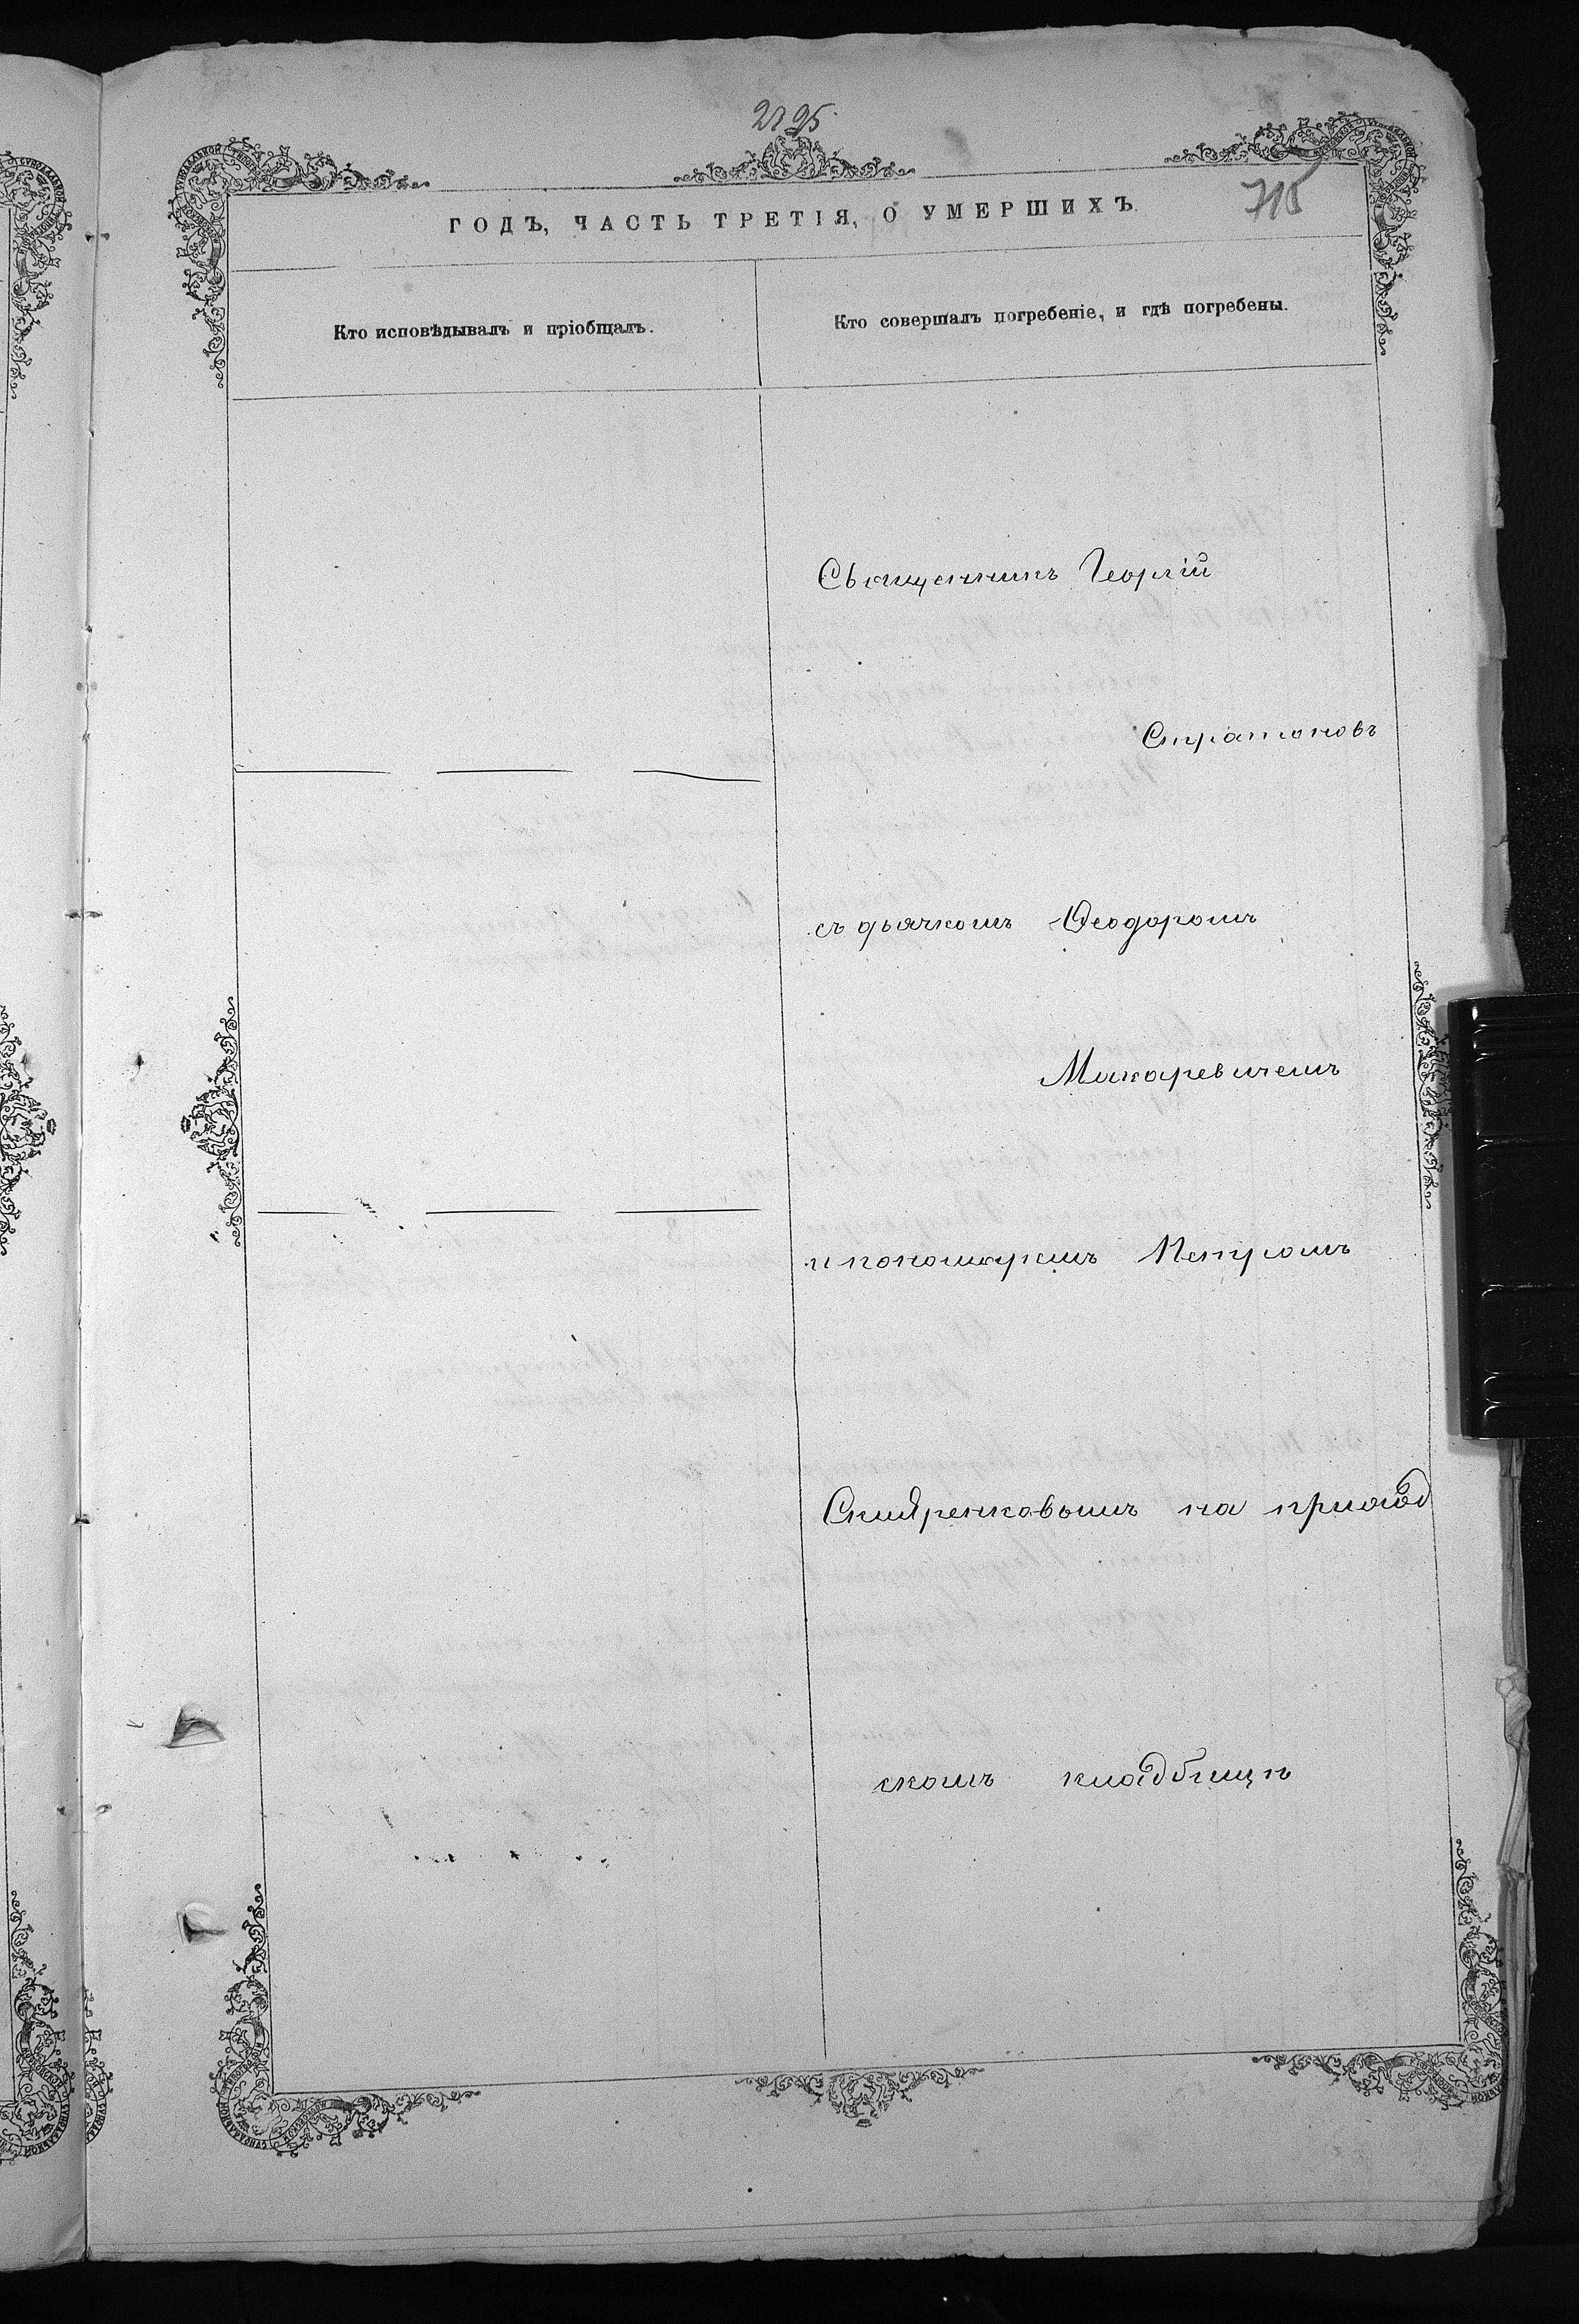 2195
715
ГОДЪ, ЧАСТЬ ТРЕТІЯ, О УМЕРШИХЪ
Кто исповѣдывалъ и пріобщалъ.
Кто совершалъ погребеніе, и гдѣ погребены.
Священникъ Георгій
Стратоновъ
съ дьячкомъ Ѳеодоромъ
Макаревичемъ
и пономаремъ Петромъ
на приход
скомъ кладбищѣ